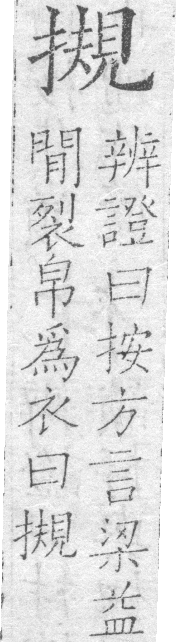 摫
辨證曰按方言梁益
閒裂帛爲衣曰摫